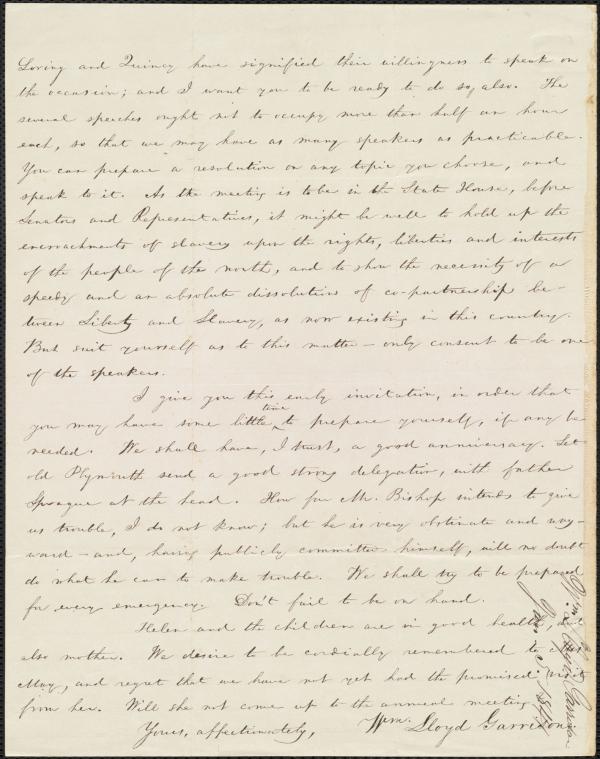 Loring and Quincy have signified their willingness to speak on
the occasion; and I want you to be ready to do so, also. The
several speeches ought not to occupy more than half an hour
each, so that we may have as many speakers as practicable.
You can prepare a resolution on any topic you choose, and
speak to it. As the meeting is to be in the State House, before
Senators and Representatives, it might be well to hold up the
encroachments of slavery upon the rights, liberties and interests
of the people of the north, and to show the necessity of a
speedy and an absolute dissolution of co-partnership be-
tween Liberty and Slavery, as now existing in this country.
But suit yourself as to this matter – only consent to be one
of the speakers.
I give you this early invitation, in order that
you may have some little time to prepare yourself, if any be
needed. We shall have, I trust, a good anniversary. Let
old Plymouth send a good strong delegation, with father
Sprague at the head. How far Mr. Bishop intends to give
us trouble, I do not know; but he is very obstinate and way-
ward – and, having publicly committed himself, will no doubt
do what he can to make trouble. We shall try to be prepared
for every emergency. Don't fail to be on hand.
Helen and the children are in good health, and
also mother. We desire to be cordially remembered to
May, and regret that we have not yet had the promised visit
from her. Will she not come up to the annual meeting
Yours, affectionately,
Wm. Lloyd Garrison.
Wm. Lloyd Garrison